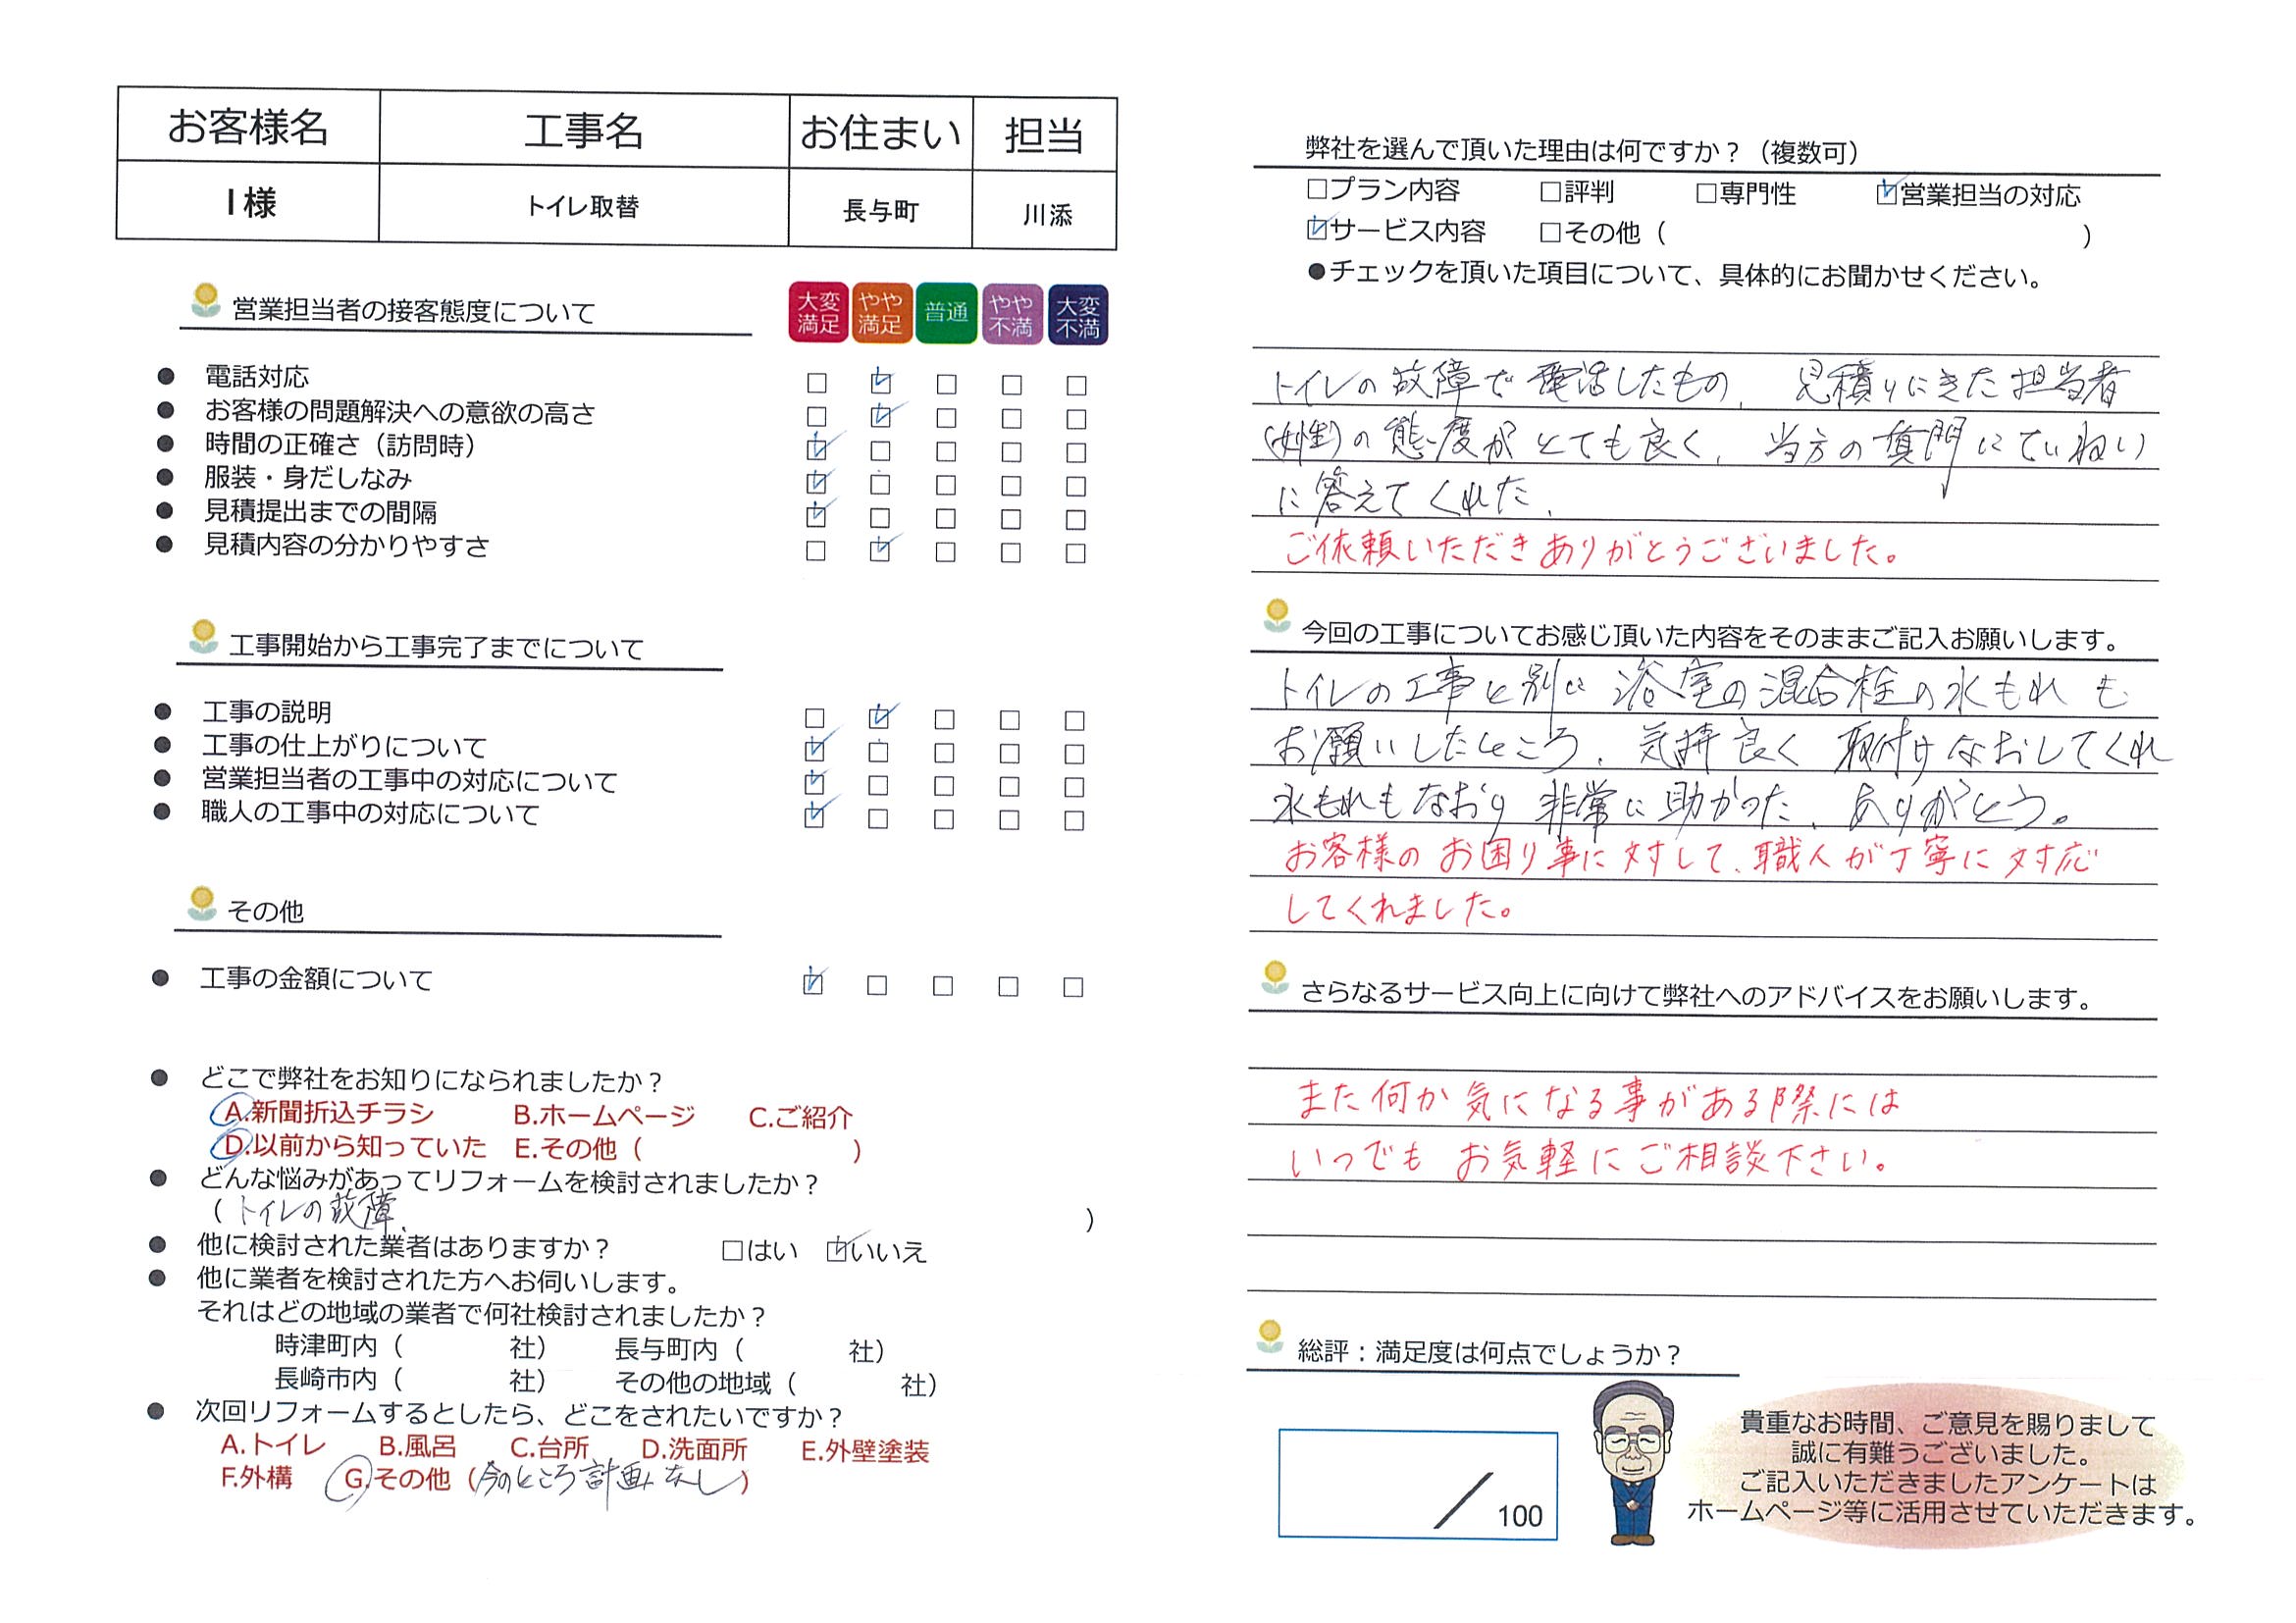 お客様名 工事名 お住まい 担当
I様 トイレ取替 長与町 川添
営業担当者の接客態度について
大変満足 やや満足 普通 やや不満 大変不満
● 電話対応 □ ☑ □ □ □
● お客様の問題解決への意欲の高さ □ ☑ □ □ □
● 時間の正確さ（訪問時） ☑ □ □ □ □
● 服装・身だしなみ ☑ □ □ □ □
● 見積提出までの間隔 ☑ □ □ □ □
● 見積内容の分かりやすさ □ ☑ □ □ □
工事開始から工事完了までについて
● 工事の説明 □ ☑ □ □ □
● 工事の仕上がりについて ☑ □ □ □ □
● 営業担当者の工事中の対応について ☑ □ □ □ □
● 職人の工事中の対応について ☑ □ □ □ □
その他
● 工事の金額について ☑ □ □ □ □
● どこで弊社をお知りになられましたか？
A.新聞折込チラシ B.ホームページ C.ご紹介
D.以前から知っていた E.その他（ ）
● どんな悩みがあってリフォームを検討されましたか？
（トイレの故障. ）
● 他に検討された業者はありますか？ □はい ☑いいえ
● 他に業者を検討された方へお伺いします。
それはどの地域の業者で何社検討されましたか？
時津町内（ 社） 長与町内（ 社）
長崎市内（ 社） その他の地域（ 社）
● 次回リフォームするとしたら、どこをされたいですか？
A.トイレ B.風呂 C.台所 D.洗面所 E.外壁塗装
F.外構 G.その他（今のところ計画なし）
弊社を選んで頂いた理由は何ですか？（複数可）
□プラン内容 □評判 □専門性 ☑営業担当の対応
☑サービス内容 □その他（ ）
●チェックを頂いた項目について、具体的にお聞かせください。
トイレの故障で電話したもの、見積りにきた担当者
(女性)の態度がとても良く、当方の質問にていねい
に答えてくれた、
ご依頼いただきありがとうございました。
今回の工事についてお感じ頂いた内容をそのままご記入お願いします。
トイレの工事と別に浴室の混合栓の水もれも
お願いしたところ、気持良く取付けなおしてくれ
水もれもなおり非常に助かった、ありがとう。
お客様のお困り事に対して、職人が丁寧に対応
してくれました。
さらなるサービス向上に向けて弊社へのアドバイスをお願いします。
また何か気になる事がある際には
いつでもお気軽にご相談下さい。
総評：満足度は何点でしょうか？
／100
貴重なお時間、ご意見を賜りまして
誠に有難うございました。
ご記入いただきましたアンケートは
ホームページ等に活用させていただきます。